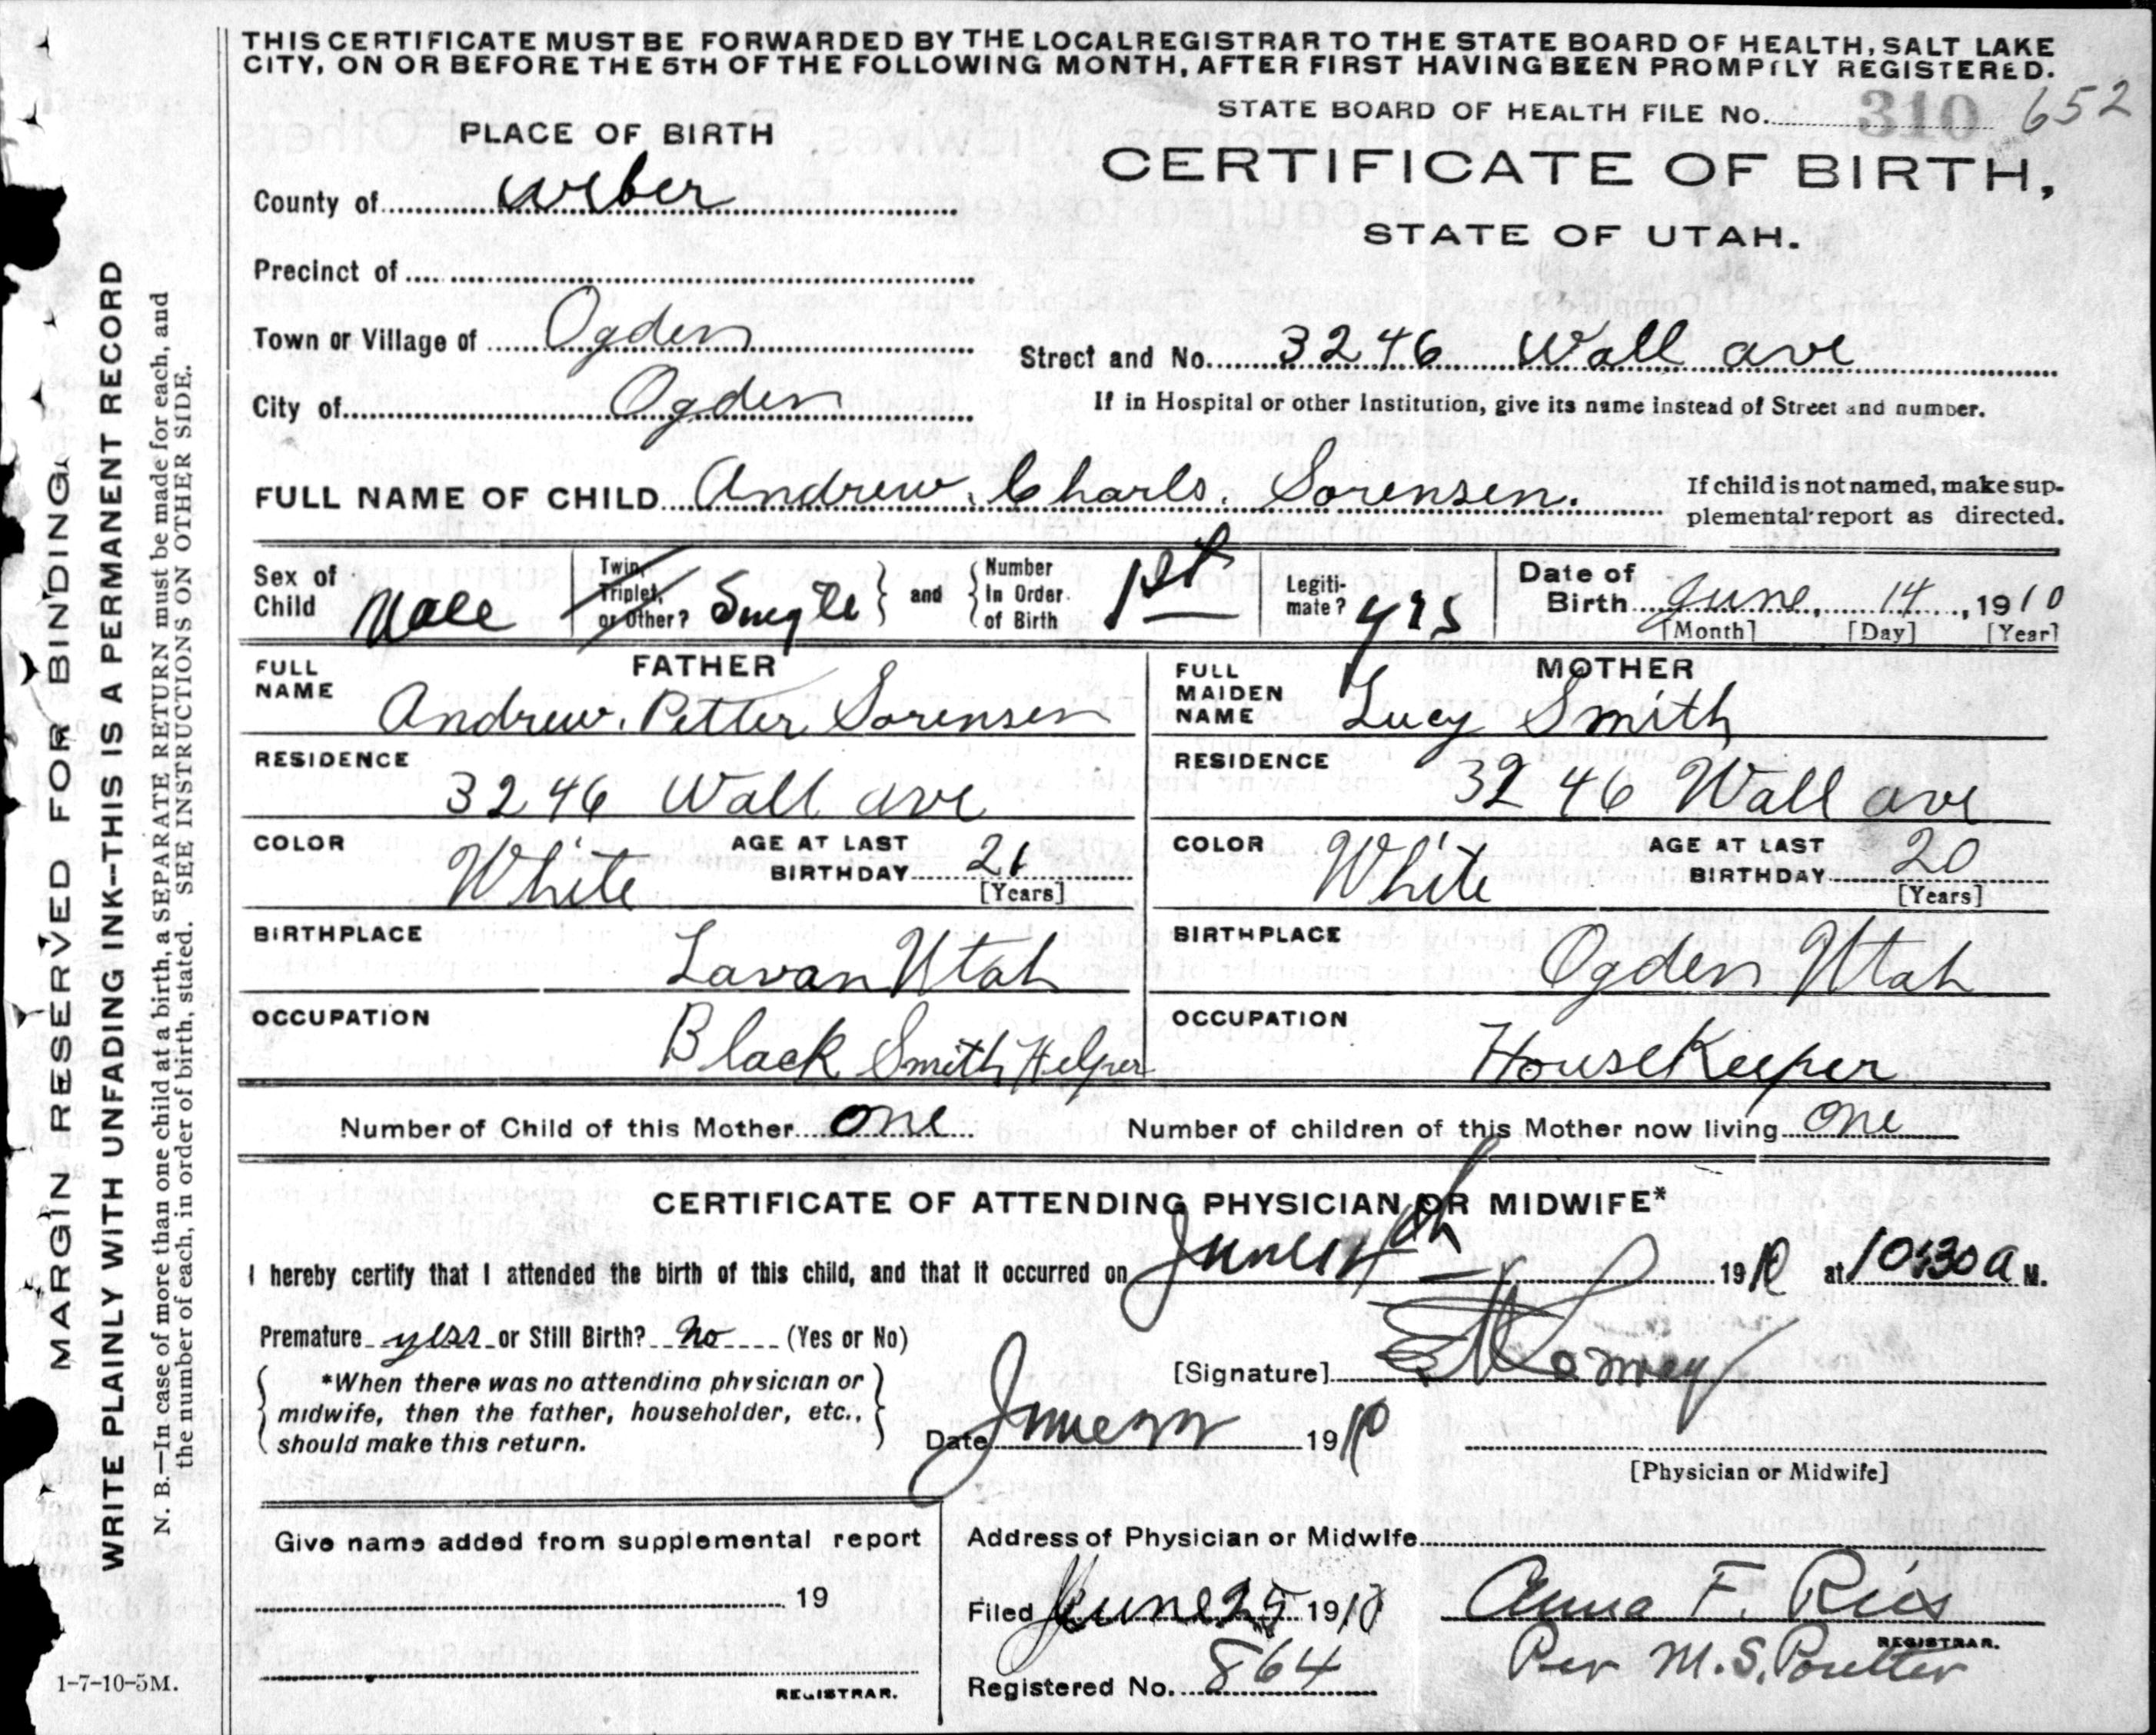 THIS CERTIFICATE MUST BE FORWARDED BY THE LOCAL REGISTRAR TO THE STATE BOARD OF HEALTH, SALT LAKE
CITY, ON OR BEFORE THE 5TH OF THE FOLLOWING MONTH, AFTER FIRST HAVING BEEN PROMPTLY REGISTERED.
STATE BOARD OF HEALTH FILE No. 310 652
PLACE OF BIRTH
CERTIFICATE OF BIRTH,
STATE OF UTAH.
County of Weber
Precinct of
Town or Village of Ogden
Street and No. 3246 Wall ave
City of Ogden
If in Hospital or other Institution, give its name instead of Street and number.
FULL NAME OF CHILD Andrew. Charls. Sorensen.
If child is not named, make sup-
plemental report as directed.
Sex of Child Male
Twin, Triplet, or Other? Single
and
Number In Order of Birth 1st
Legiti-mate? yes
Date of Birth June, 14, 1910
[Month] [Day] [Year]
FATHER
FULL NAME Andrew. Petter Sorensen
RESIDENCE 3246 Wall ave
COLOR White
AGE AT LAST BIRTHDAY 21
[Years]
BIRTHPLACE Lavan Utah
OCCUPATION Black Smith Helper
MOTHER
FULL MAIDEN NAME Lucy Smith
RESIDENCE 3246 Wall ave
COLOR White
AGE AT LAST BIRTHDAY 20
[Years]
BIRTHPLACE Ogden Utah
OCCUPATION HouseKeeper
Number of Child of this Mother one
Number of children of this Mother now living one
CERTIFICATE OF ATTENDING PHYSICIAN OR MIDWIFE*
I hereby certify that I attended the birth of this child, and that it occurred on June 14th 1910 at 10:30 a M.
Premature yess or Still Birth? no (Yes or No)
*When there was no attending physician or
midwife, then the father, householder, etc.,
should make this return.
[Signature]
Date June 1910
[Physician or Midwife]
Give name added from supplemental report
19
REGISTRAR.
Address of Physician or Midwife
Filed June 25 1910
Anna F. Ries
REGISTRAR.
Per M.S. Poulter
Registered No. 864
MARGIN RESERVED FOR BINDING.
WRITE PLAINLY WITH UNFADING INK--THIS IS A PERMANENT RECORD
N. B.—In case of more than one child at a birth, a SEPARATE RETURN must be made for each, and
the number of each, in order of birth, stated. SEE INSTRUCTIONS ON OTHER SIDE.
1-7-10-5M.